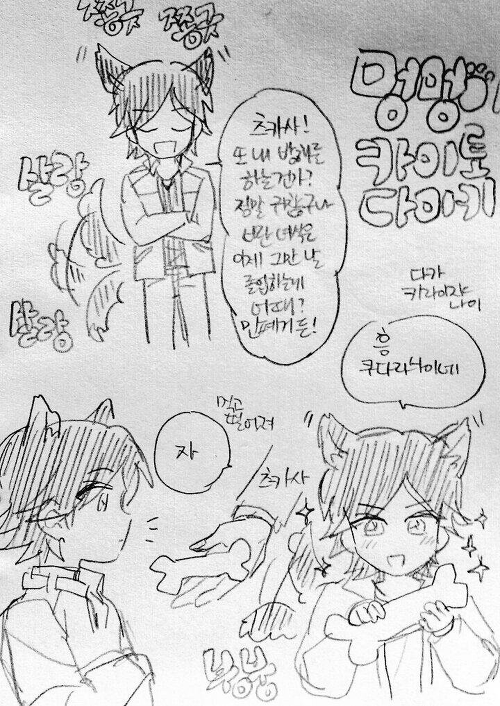 쫑긋
쫑긋
멍멍이
카이토
다이키
살랑
살랑
츠카사!
또 내 방해를
하는건가?
정말 귀찮구나
너란 녀석은
이제 그만 날
졸업하는게
어때?
민폐거든!
다가
키라이쟈
나이
흥
쿠다라나이네
먹고
떨어져
자
츠카사